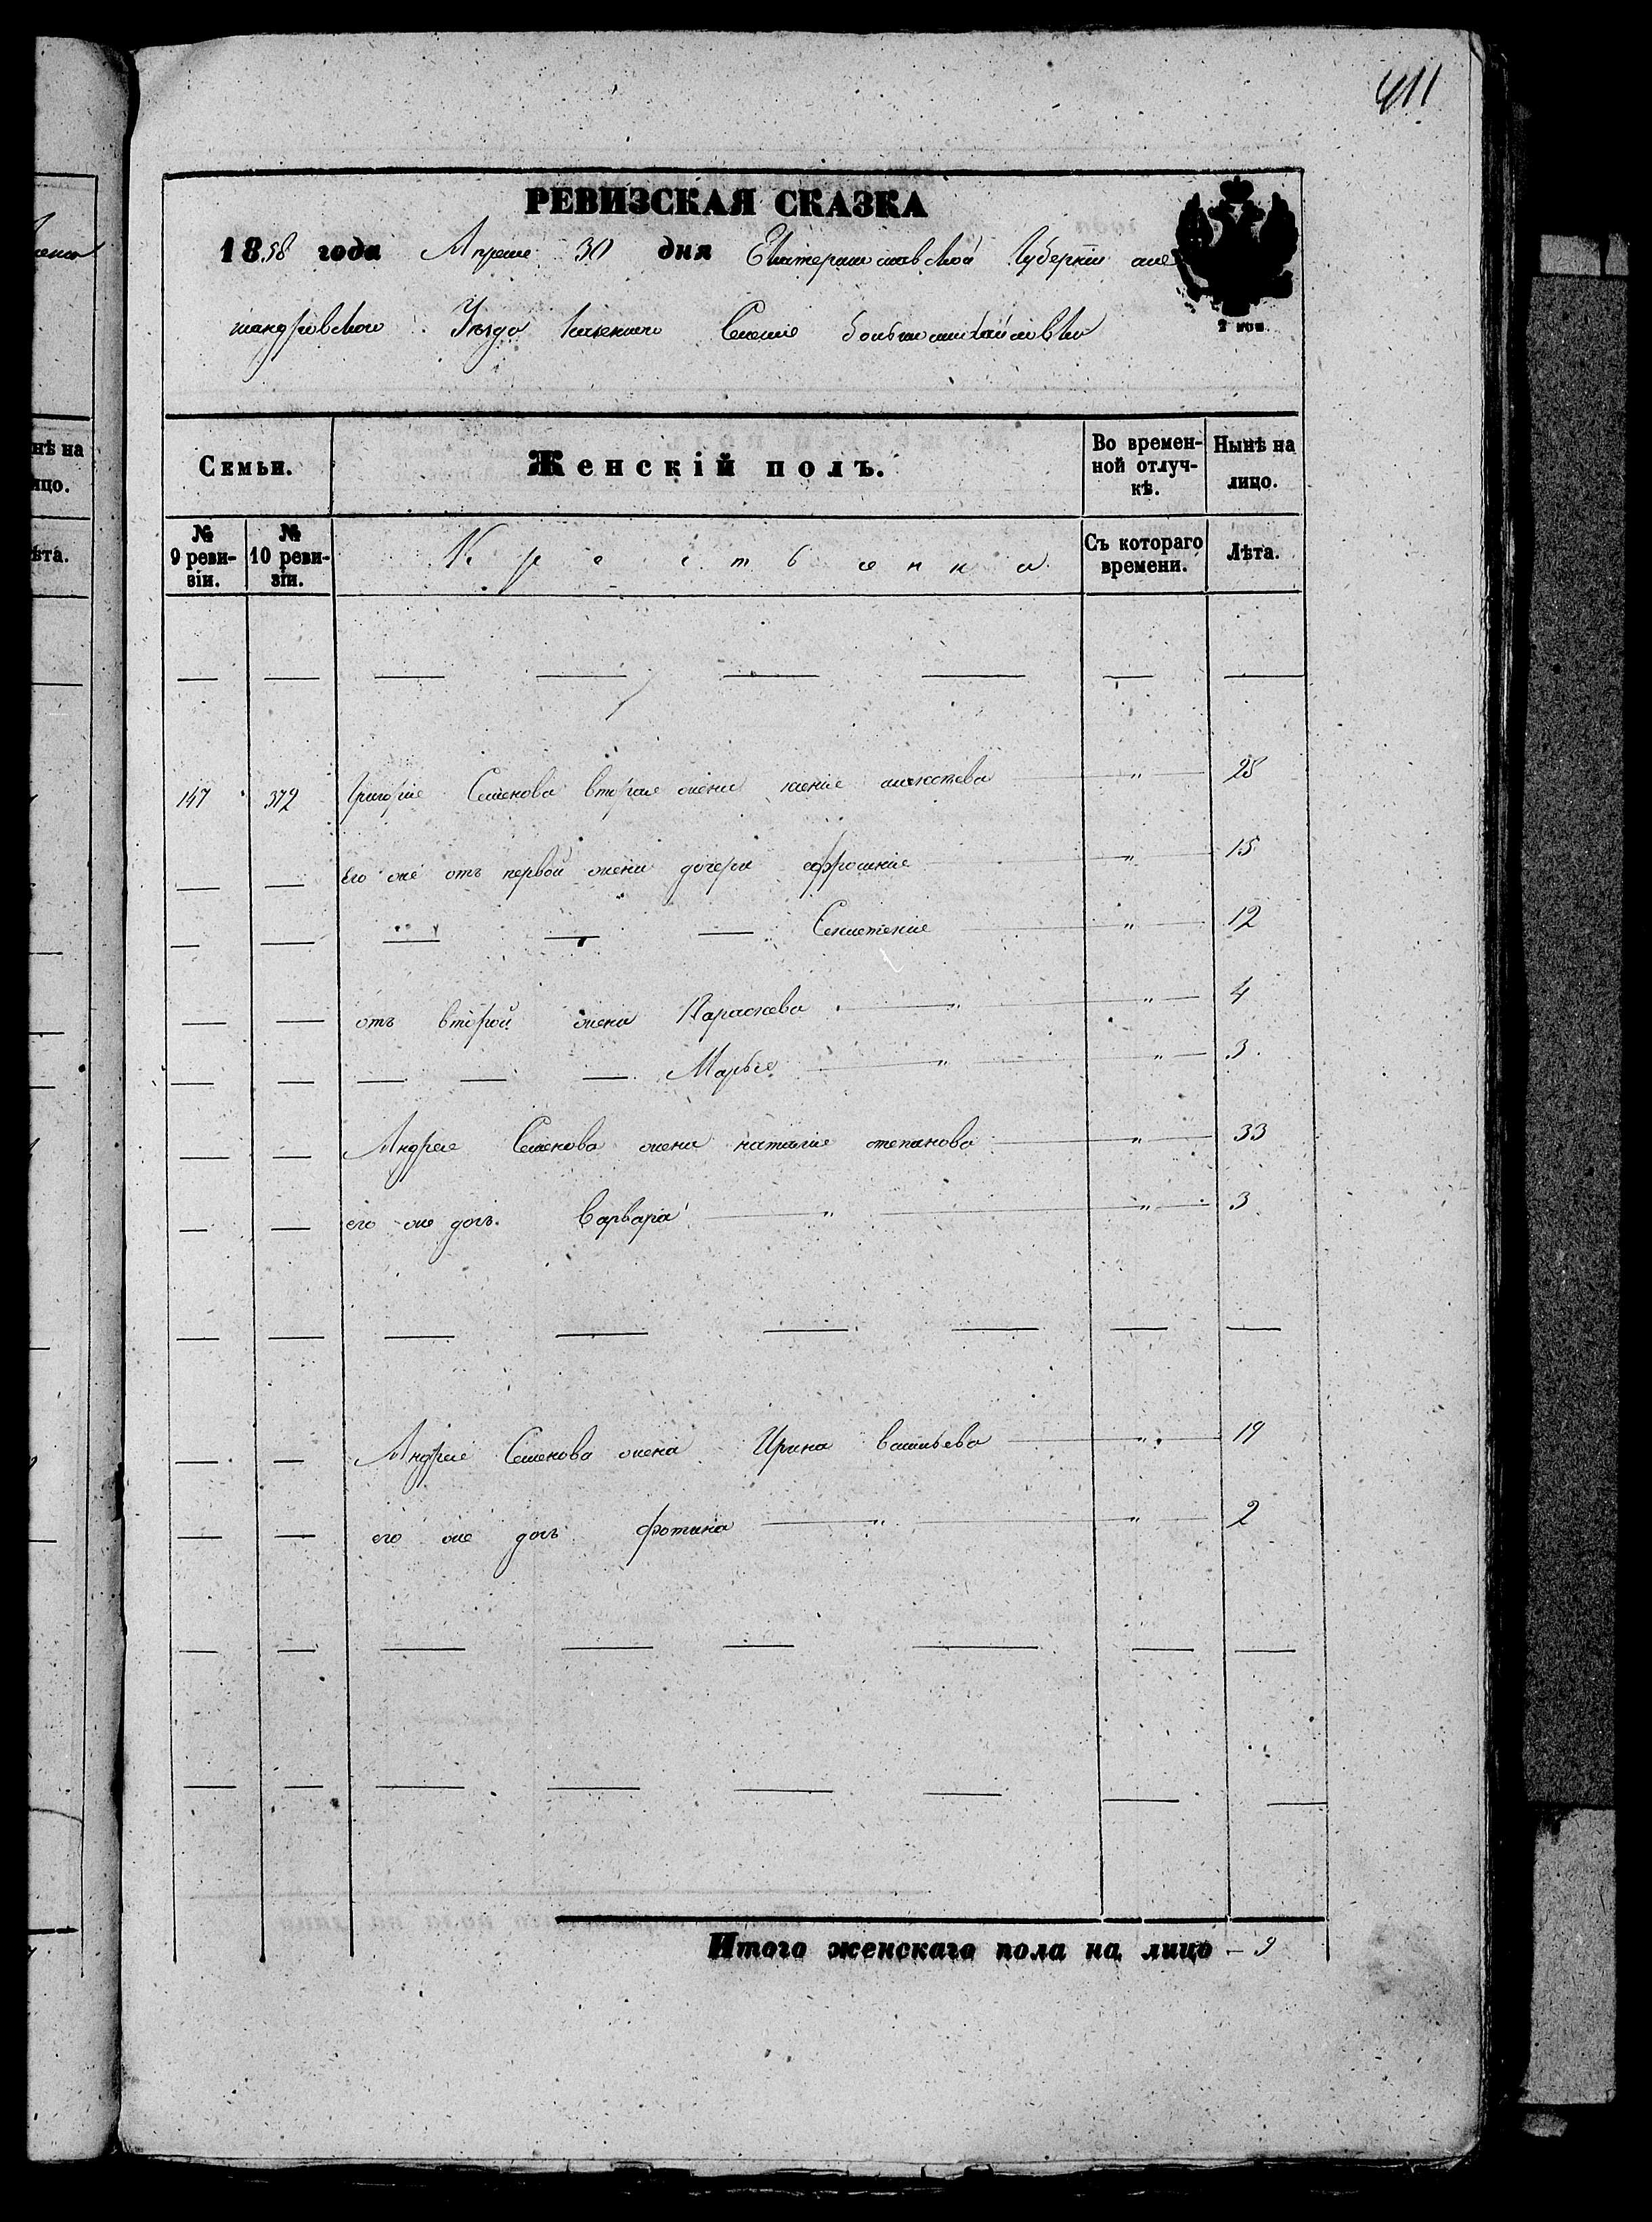 411
РЕВИЗСКАЯ СКАЗКА
1858 года Апреля 30 дня Екатеринославской Губернии алек
сандровского Уезда казенного Селения большомихайловки
2 коп.
Семьи.
Женскій полъ.
Во времен-
ной отлуч-
кѣ.
Нынѣ на
лицо.
№
9 реви-
зіи.
№
10 реви-
зіи.
Крестьянка
Съ котораго
времени.
Лѣта.
147 372 Григорія Семенова вторая жена " 28
его же отъ первой жени дочери афросинія " 15
" 12
отъ второй жени Параскева " " 4
Марья " " 3
Андрея Семенова жена наталия степанова " 33
его же дочь Варвара " " 3
Андрея Семенова жена Ирина васильева " 19
его же дочь фотина " " 2
Итого женскаго пола на лицо - 9
нѣ на
ицо.
ѣта.